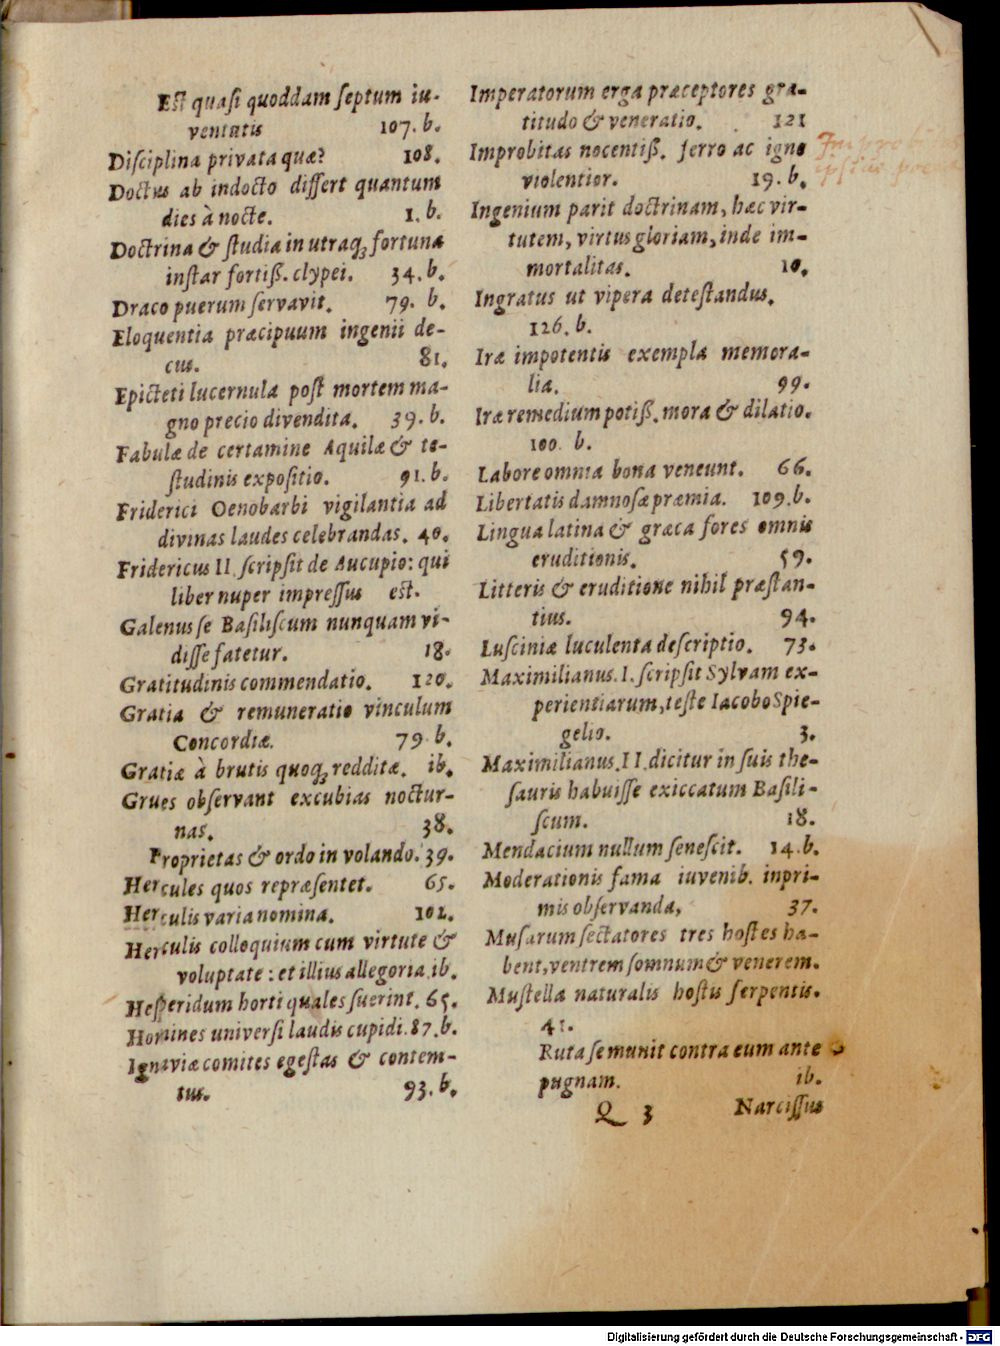 Est quasi quoddam ſeptum iu-
ventutis 107. b.
Diſciplina privata quæ? 108.
Doctus ab indocto differt quantum
dies à nocte. 1. b.
Doctrina & ſtudia in utraqꝫ fortuna
inſtar fortiß. clypei. 34. b.
Draco puerum ſervavit. 79. b.
Eloquentia præcipuum ingenii de-
cus. 81.
Epicteti lucernula poſt mortem ma-
gno precio divendita. 39. b.
Fabulæ de certamine Aquilæ & te-
ſtudinis expoſitio. 91. b.
Friderici Oenobarbi vigilantia ad
divinas laudes celebrandas. 40.
Fridericus II. ſcripſit de Aucupio: qui
liber nuper impreſſus eſt.
Galenus ſe Baſiliſcum nunquam vi-
diſſe fatetur. 18.
Gratitudinis commendatio. 120.
Gratia & remuneratio vinculum
Concordiæ. 79 b.
Gratiæ à brutis quoqꝫ redditæ. ib.
Grues obſervant excubias noctur-
nas. 38.
Proprietas & ordo in volando. 39.
Hercules quos repræſentet. 65.
Herculis varia nomina. 102.
Herculis colloquium cum virtute &
voluptate: et illius allegoria. ib.
Heſperidum horti quales fuerint. 65.
Homines univerſi laudis cupidi. 87. b.
Ignaviæ comites egeſtas & contem-
tus. 93. b.
Imperatorum erga præceptores gra-
titudo & veneratio. 121
Improbitas nocentiß. ferro ac igne
violentior. 19. b.
Ingenium parit doctrinam, hæc vir-
tutem, virtus gloriam, inde im-
mortalitas. 10.
Ingratus ut vipera deteſtandus.
126. b.
Iræ impotentis exempla memora-
lia. 99.
Iræ remedium potiß. mora & dilatio.
100. b.
Labore omnia bona veneunt. 66.
Libertatis damnoſæ præmia. 109. b.
Lingua latina & græca fores omnis
eruditionis. 59.
Litteris & eruditione nihil præſtan-
tius. 94.
Luſciniæ luculenta deſcriptio. 73.
Maximilianus. I. ſcripſit Sylvam ex-
perientiarum, teſte Iacobo Spie-
gelio. 3.
Maximilianus. II. dicitur in ſuis the-
ſauris habuiſſe exiccatum Baſili-
ſcum. 18.
Mendacium nullum ſeneſcit. 14. b.
Moderationis fama iuvenib. inpri-
mis obſervanda, 37.
Muſarum ſectatores tres hoſtes ha-
bent, ventrem ſomnum & venerem.
Muſtella naturalis hoſtis ſerpentis.
41.
Ruta ſe munit contra eum ante
pugnam. ib.
Q 3 Narciſſus
Digitalisierung gefördert durch die Deutsche Forschungsgemeinschaft - DFG